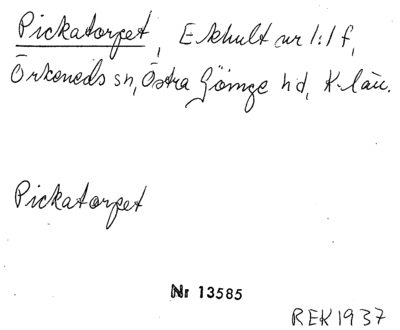 Pickatorpet, Ekhult nr 1:1 f,
Örkeneds sn, Östra Göinge hd, K-län.
Pickatorpet
Nr 13585
REK 1937